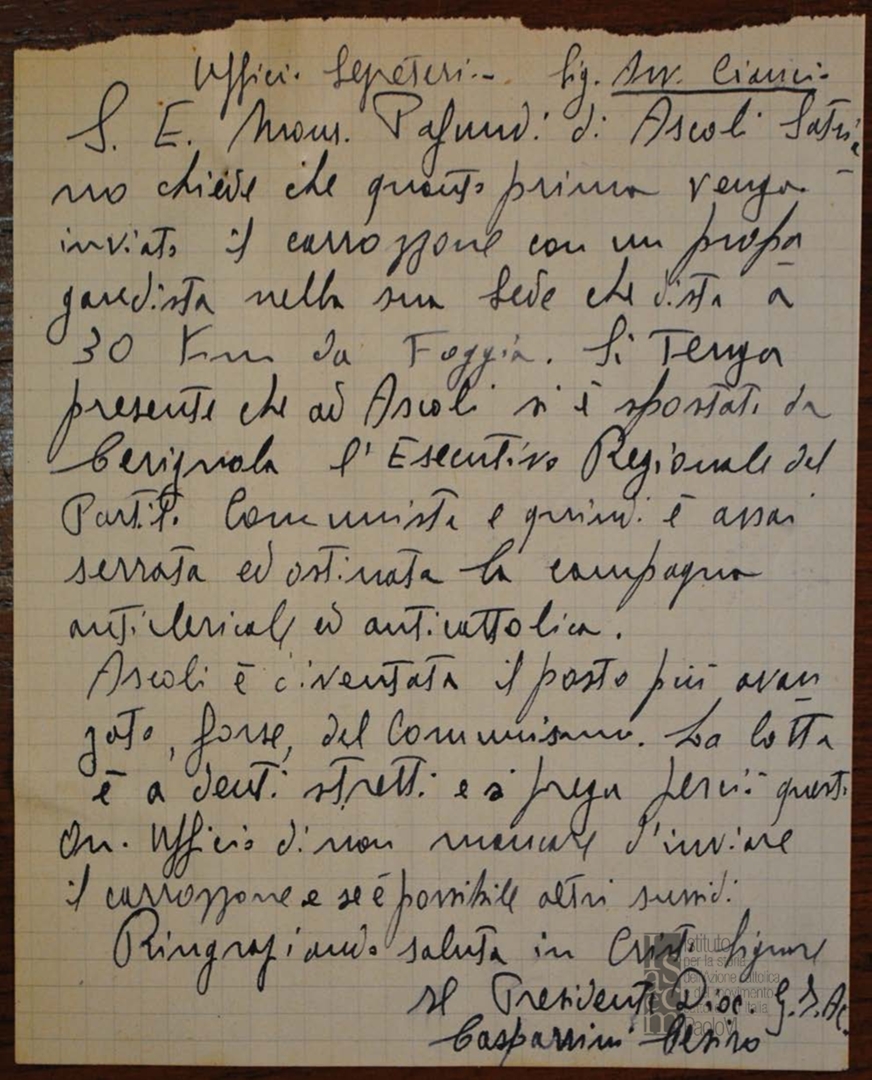 Uffici Sig. Avv. Cianci
S. E. Mons. Pafundi di Ascoli Satria
no chiede che quanto prima venga
inviato il carrozzone con un propa
gandista nella sua Sede che dista a
30 Km da Foggia. Si Tenga
presente che ad Ascoli si è spostato da
Cerignola l'Esecutivo Regionale del
Partito Communista e quindi è assai
serrata ed ostinata la campagna
anticlericale ed anticattolica.
Ascoli è diventata il posto più avan
zato, forse, del Communismo. La lotta
è a denti stretti e si prega perciò questo
On. Ufficio di non mancare d'inviare
il carrozzone e se è possibile altri sussidi.
Ringraziando saluta in Cristo Signore
Il Presidente Dioc. G.I.A.C.
Istituto
per la storia
dell'Azione cattolica
e del movimento
Italia
PaoloVI